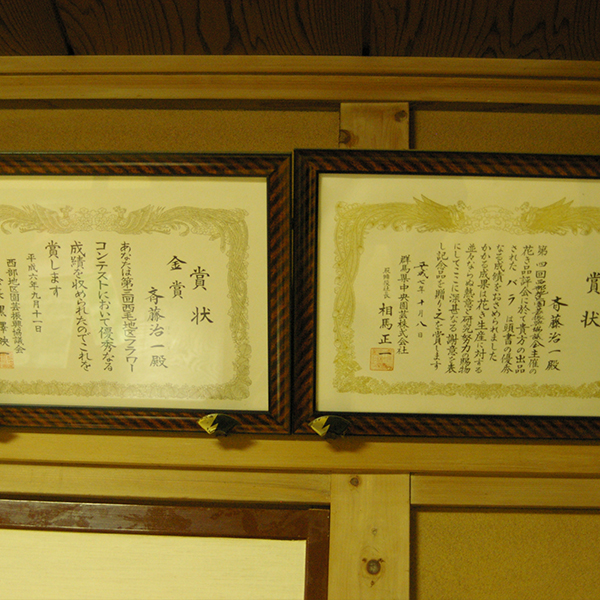 賞
斉藤治一殿
第四回西部地区園芸振興協議会主催の
花き品評会に於て貴方の出品
された バラ は頭書の優秀
なる成績をおさめられました
かかる成果は花き生産に対する
並々ならぬ熱意と研究努力の賜物
にしてここに深甚なる謝意を表
し記念品を贈り之を賞します
平成七年十月八日
群馬県中央園芸株式会社
取締役社長 相馬正一
賞状
金賞
斉藤治一殿
あなたは第三回西毛地区フラワー
コンテストにおいて優秀なる
成績を収められたのでこれを
賞します
平成六年九月十一日
西部地区園芸振興協議会
黒澤映